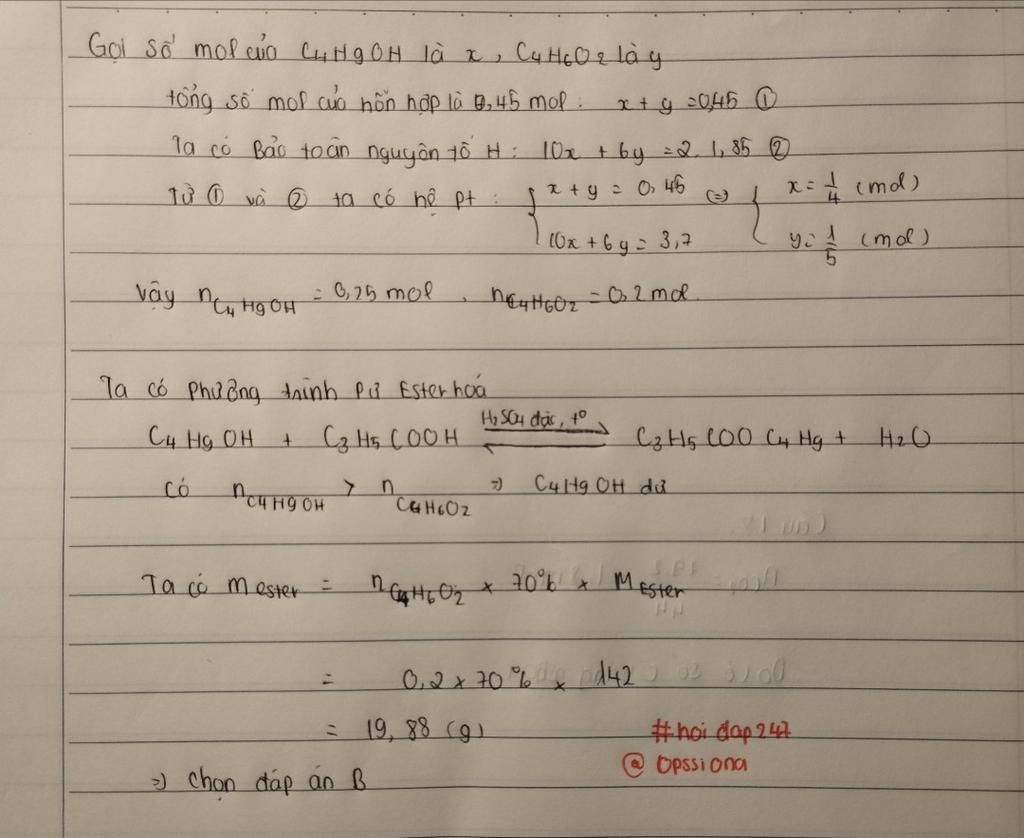 Gọi số mol của C4H9OH là x, C4H6O2 là y
tổng số mol của hỗn hợp là 0,45 mol: x + y = 0,45 ①
Ta có Bảo toàn nguyên tố H: 10x + 6y = 2.1,85 ②
Từ ① và ② ta có hệ pt: { x + y = 0,45 (=) { x = 1/4 (mol)
10x + 6y = 3,7 y = 1/5 (mol)
Vậy nC4H9OH = 0,25 mol, nC4H6O2 = 0,2 mol.
Ta có phương trình pư Ester hoá
C4H9OH + C3H5COOH ⇌ C3H5COOC4H9 + H2O
H2SO4 đặc, t°
có nC4H9OH > nC4H6O2 => C4H9OH dư
Ta có m ester = nC4H6O2 × 70% × M Ester
= 0,2 × 70% × 142
= 19,88 (g)
#hoidap247
@ Opssiona
=> Chọn đáp án B